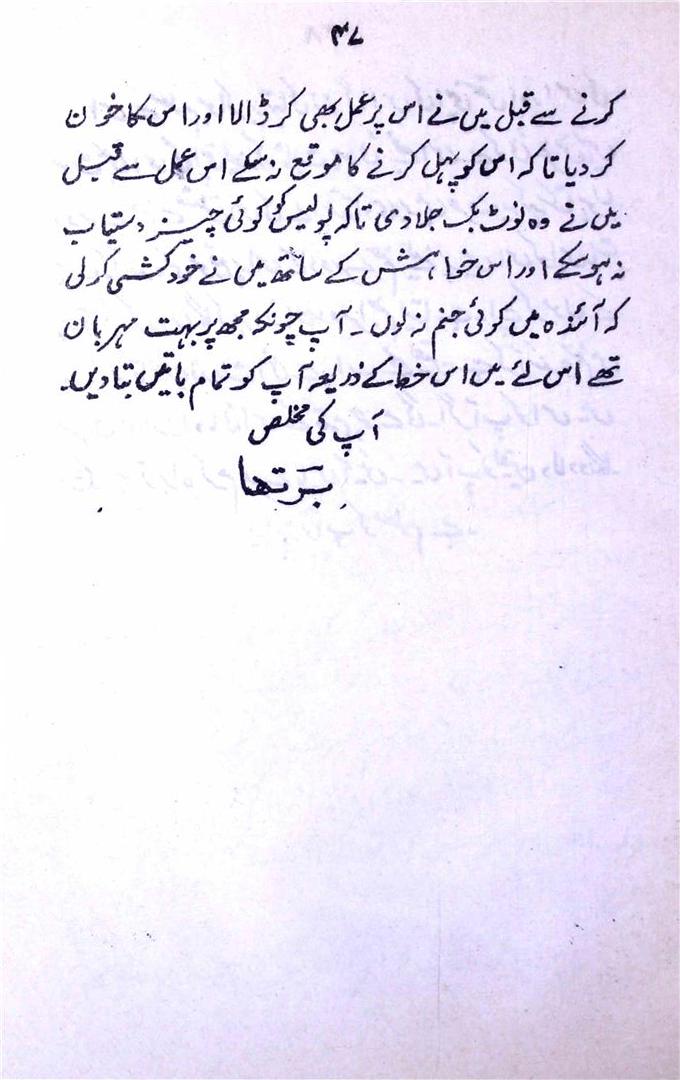 ۴۷
کرنے سے قبل میں نے اس پر عمل بھی کر ڈالا اور اس کا خون
کر دیا تاکہ اس کو پہل کرنے کا موقع نہ سکے اس عمل سے قبل
میں نے وہ نوٹ بک جلا دی تاکہ پولیس کو کوئی چیز دستیاب
نہ ہو سکے اور اس خواہش کے ساتھ میں نے خودکشی کر لی
کہ آئندہ میں کوئی جنم نہ لوں ۔ آپ چونکہ مجھ پر بہت مہربان
تھے اس لئے میں اس خط کے ذریعہ آپ کو تمام باتیں بتا دیں۔
آپ کی مخلص
بَرتھا